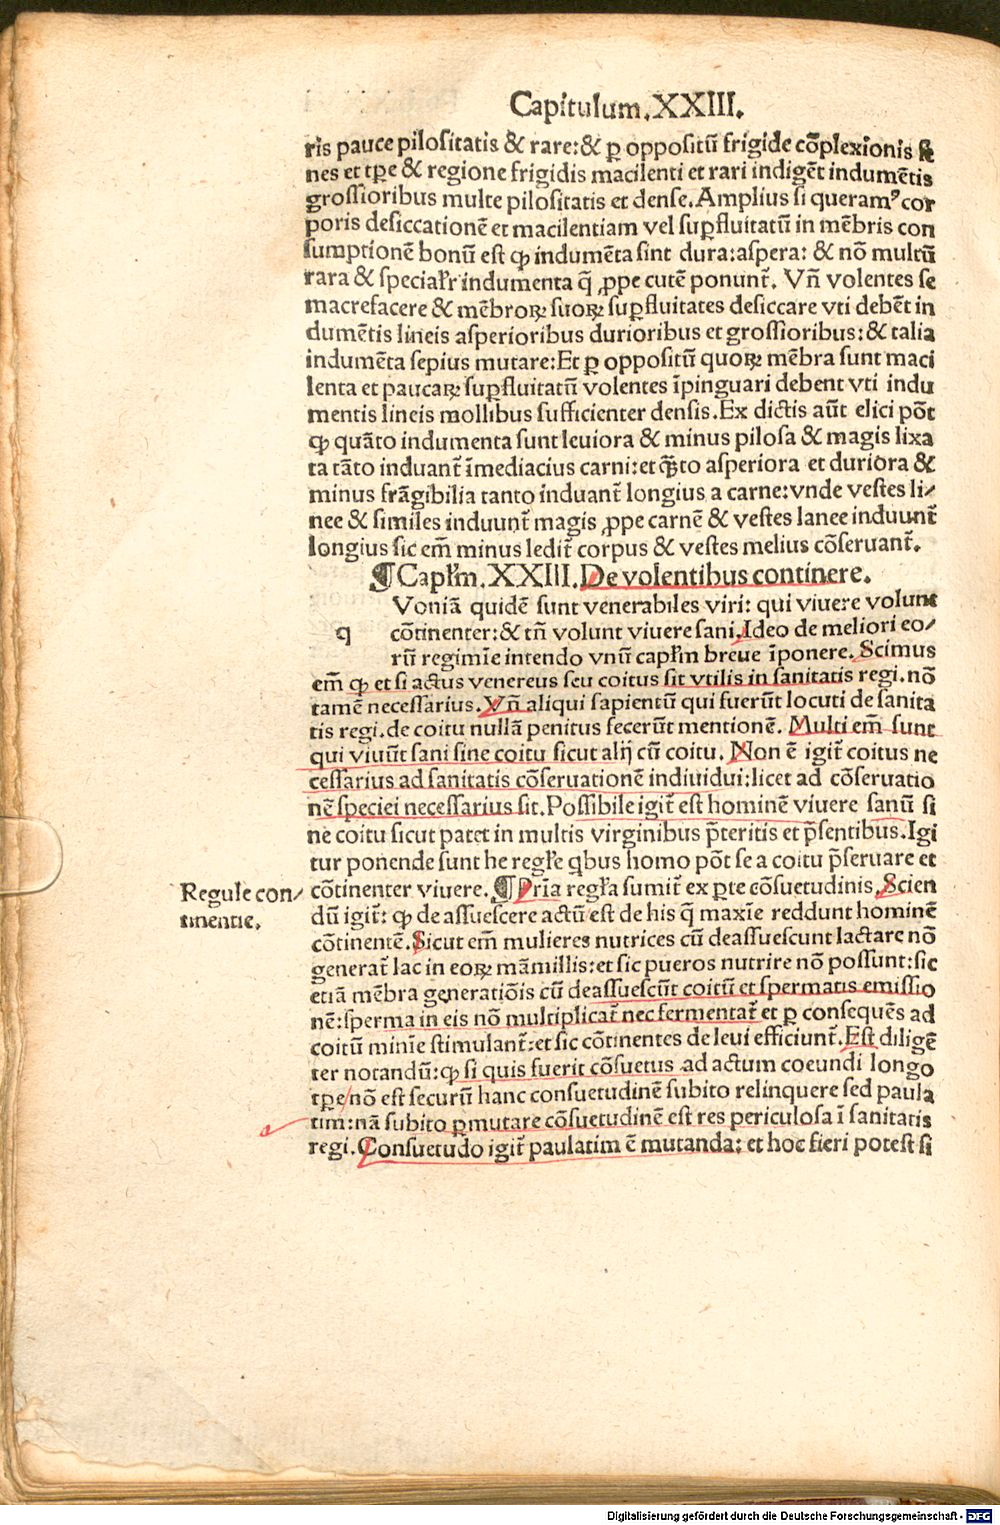 Capitulum.XXIII.
ris pauce pilositatis & rare:& ꝑ oppositũ frigide cõplexionis se
nes et tꝑe & regione frigidis macilenti et rari indigẽt indumẽtis
grossioribus multe pilositatis et dense.Amplius si queramꝰ cor
poris desiccationẽ et macilentiam vel suꝑfluitatũ in mẽbris con
sumptionẽ bonũ est ꝙ indumẽta sint dura:aspera: & nõ multũ
rara & specialr̃ indumenta q̃ ꝓpe cutẽ ponunt̃. Vñ volentes se
macrefacere & mẽbroꝝ suoꝝ suꝑfluitates desiccare vti debẽt in
dumẽtis lineis asperioribus durioribus et grossioribus:& talia
indumẽta sepius mutare:Et ꝑ oppositũ quoꝝ mẽbra sunt maci
lenta et paucaꝝ suꝑfluitatũ volentes ĩpinguari debent vti indu
mentis lineis mollibus sufficienter densis.Ex dictis aũt elici põt
ꝙ quãto indumenta sunt leuiora & minus pilosa & magis lixa
ta tãto induant̃ ĩmediacius carni:et q̃̃to asperiora et duriora &
minus frãgibilia tanto induant̃ longius a carne:vnde vestes li⸗
nee & similes induunt̃ magis ꝓpe carnẽ & vestes lanee induunt̃
longius sic em̃ minus ledit̃ corpus & vestes melius cõseruant̃.
¶ Capłm.XXIII.De volentibus continere.
q Voniã quidẽ sunt venerabiles viri: qui viuere volunt
cõtinenter:& tñ volunt viuere sani.Ideo de meliori eo⸗
rũ regimĩe intendo vnũ capłm breue ĩponere.Scimus
em̃ ꝙ et si actus venereus seu coitus sit vtilis in sanitatis regi.nõ
tamẽ necessarius.Vñ aliqui sapientũ qui fuerũt locuti de sanita
tis regi.de coitu nullã penitus fecerũt mentionẽ. Multi em̃ sunt
qui viuũt sani sine coitu sicut alij cũ coitu. Non ẽ igit̃ coitus ne
cessarius ad sanitatis cõseruationẽ indiuidui:licet ad cõseruatio
nẽ speciei necessarius sit.Possibile igit̃ est hominẽ viuere sanũ si
ne coitu sicut patet in multis virginibus p̃teritis et p̃sentibus.Igi
tur ponende sunt he regłe qbus homo põt se a coitu p̃seruare et
cõtinenter viuere.¶ Pria regła sumit̃ ex ꝑte cõsuetudinis.Scien
dũ igit̃: ꝙ de assuescere actũ est de his q̃ maxĩe reddunt hominẽ
cõtinentẽ.Sicut em̃ mulieres nutrices cũ deassuescunt lactare nõ
generat̃ lac in eoꝝ mãmillis:et sic pueros nutrire nõ possunt:sic
etiã mẽbra generatiõis cũ deassuescũt coitũ et spermatis emissio
nẽ:sperma in eis nõ multiplicat̃ nec fermentat̃ et ꝑ consequẽs ad
coitũ minĩe stimulant̃:et sic cõtinentes de leui efficiunt̃.Est diligẽ
ter notandũ:ꝙ si quis fuerit cõsuetus ad actum coeundi longo
tꝑe nõ est securũ hanc consuetudinẽ subito relinquere sed paula
tim:nã subito ꝑmutare cõsuetudinẽ est res periculosa ĩ sanitatis
regi.Consuetudo igit̃ paulatim ẽ mutanda: et hoc fieri potest si
Regule con⸗
tinentie.
Digitalisierung gefördert durch die Deutsche Forschungsgemeinschaft - DFG